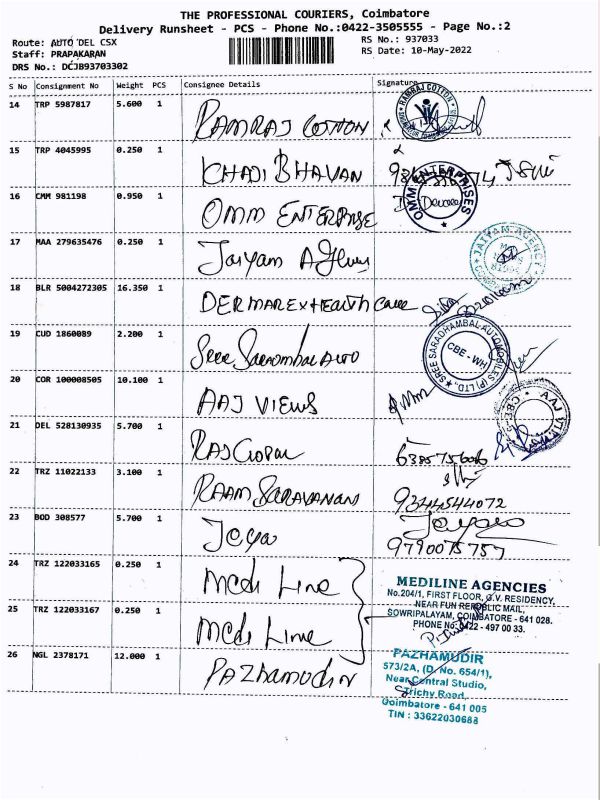 THE PROFESSIONAL COURIERS, Coimbatore
Delivery Runsheet - PCS - Phone No.:0422-3505555 - Page No.:2
Route: AUTO DEL CSX
RS No.: 937033
Staff: PRAPAKARAN
RS Date: 10-May-2022
DRS No.: DCJB93703302
S No Consignment No Weight PCS Consignee Details Signature
14 TRP 5987817 5.600 1 RAMRAJ COTTON
RAMRAJ COTTON
15 TRP 4045995 0.250 1 KHADI BHAVAN
16 CMM 981198 0.950 1 OMM ENTERPRISE
OMM ENTERPRISES
17 MAA 279635476 0.250 1 Jaiyam Agency
JAIYAM AGENCY
18 BLR 5004272305 16.350 1 DERMAREX HEALTH Care
19 CUD 1860089 2.200 1 Sree Saradmbal AUTO
SREE SARADHAMBAL AUTOMOBILES (P) LTD.
CBE - WH
20 COR 100008505 10.100 1 AAJ VIEWS
AAJ
CBE
21 DEL 528130935 5.700 1 RAJ GOPAL
22 TRZ 11022133 3.100 1 RAAM SARAVANAN
9344544072
23 BOD 308577 5.700 1 Jeya
9790075757
24 TRZ 122033165 0.250 1 Medi Line
25 TRZ 122033167 0.250 1 Medi Line
MEDILINE AGENCIES
No.204/1, FIRST FLOOR, G.V. RESIDENCY,
NEAR FUN REPUBLIC MAIL,
SOWRIPALAYAM, COIMBATORE - 641 028.
PHONE No: 0422 - 497 00 33.
26 NGL 2378171 12.000 1 PAZHAMUDIR
PAZHAMUDIR
573/2A, (D. No. 654/1),
Near Central Studio,
Trichy Road,
Coimbatore - 641 005
TIN : 33622030688